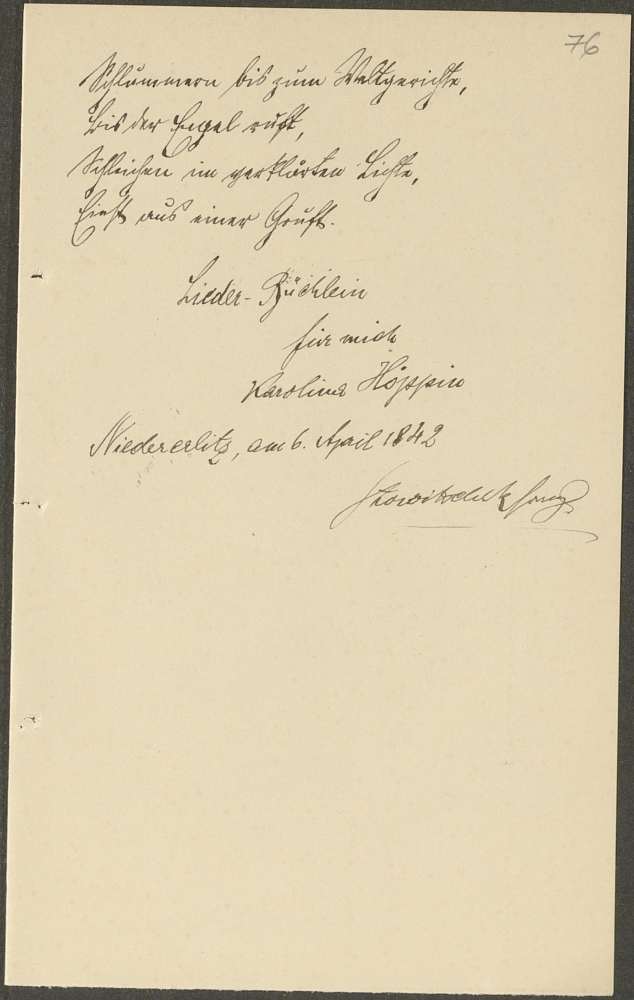 76
Schlummern bis zum Weltgerichte,
Bis der Engel ruft,
Schleichen im verklärten Lichte,
Einst aus einer Gruft.
Lieder-Büchlein
für mich
Karolina Höppin
Niedererlitz, am 6. April 1842